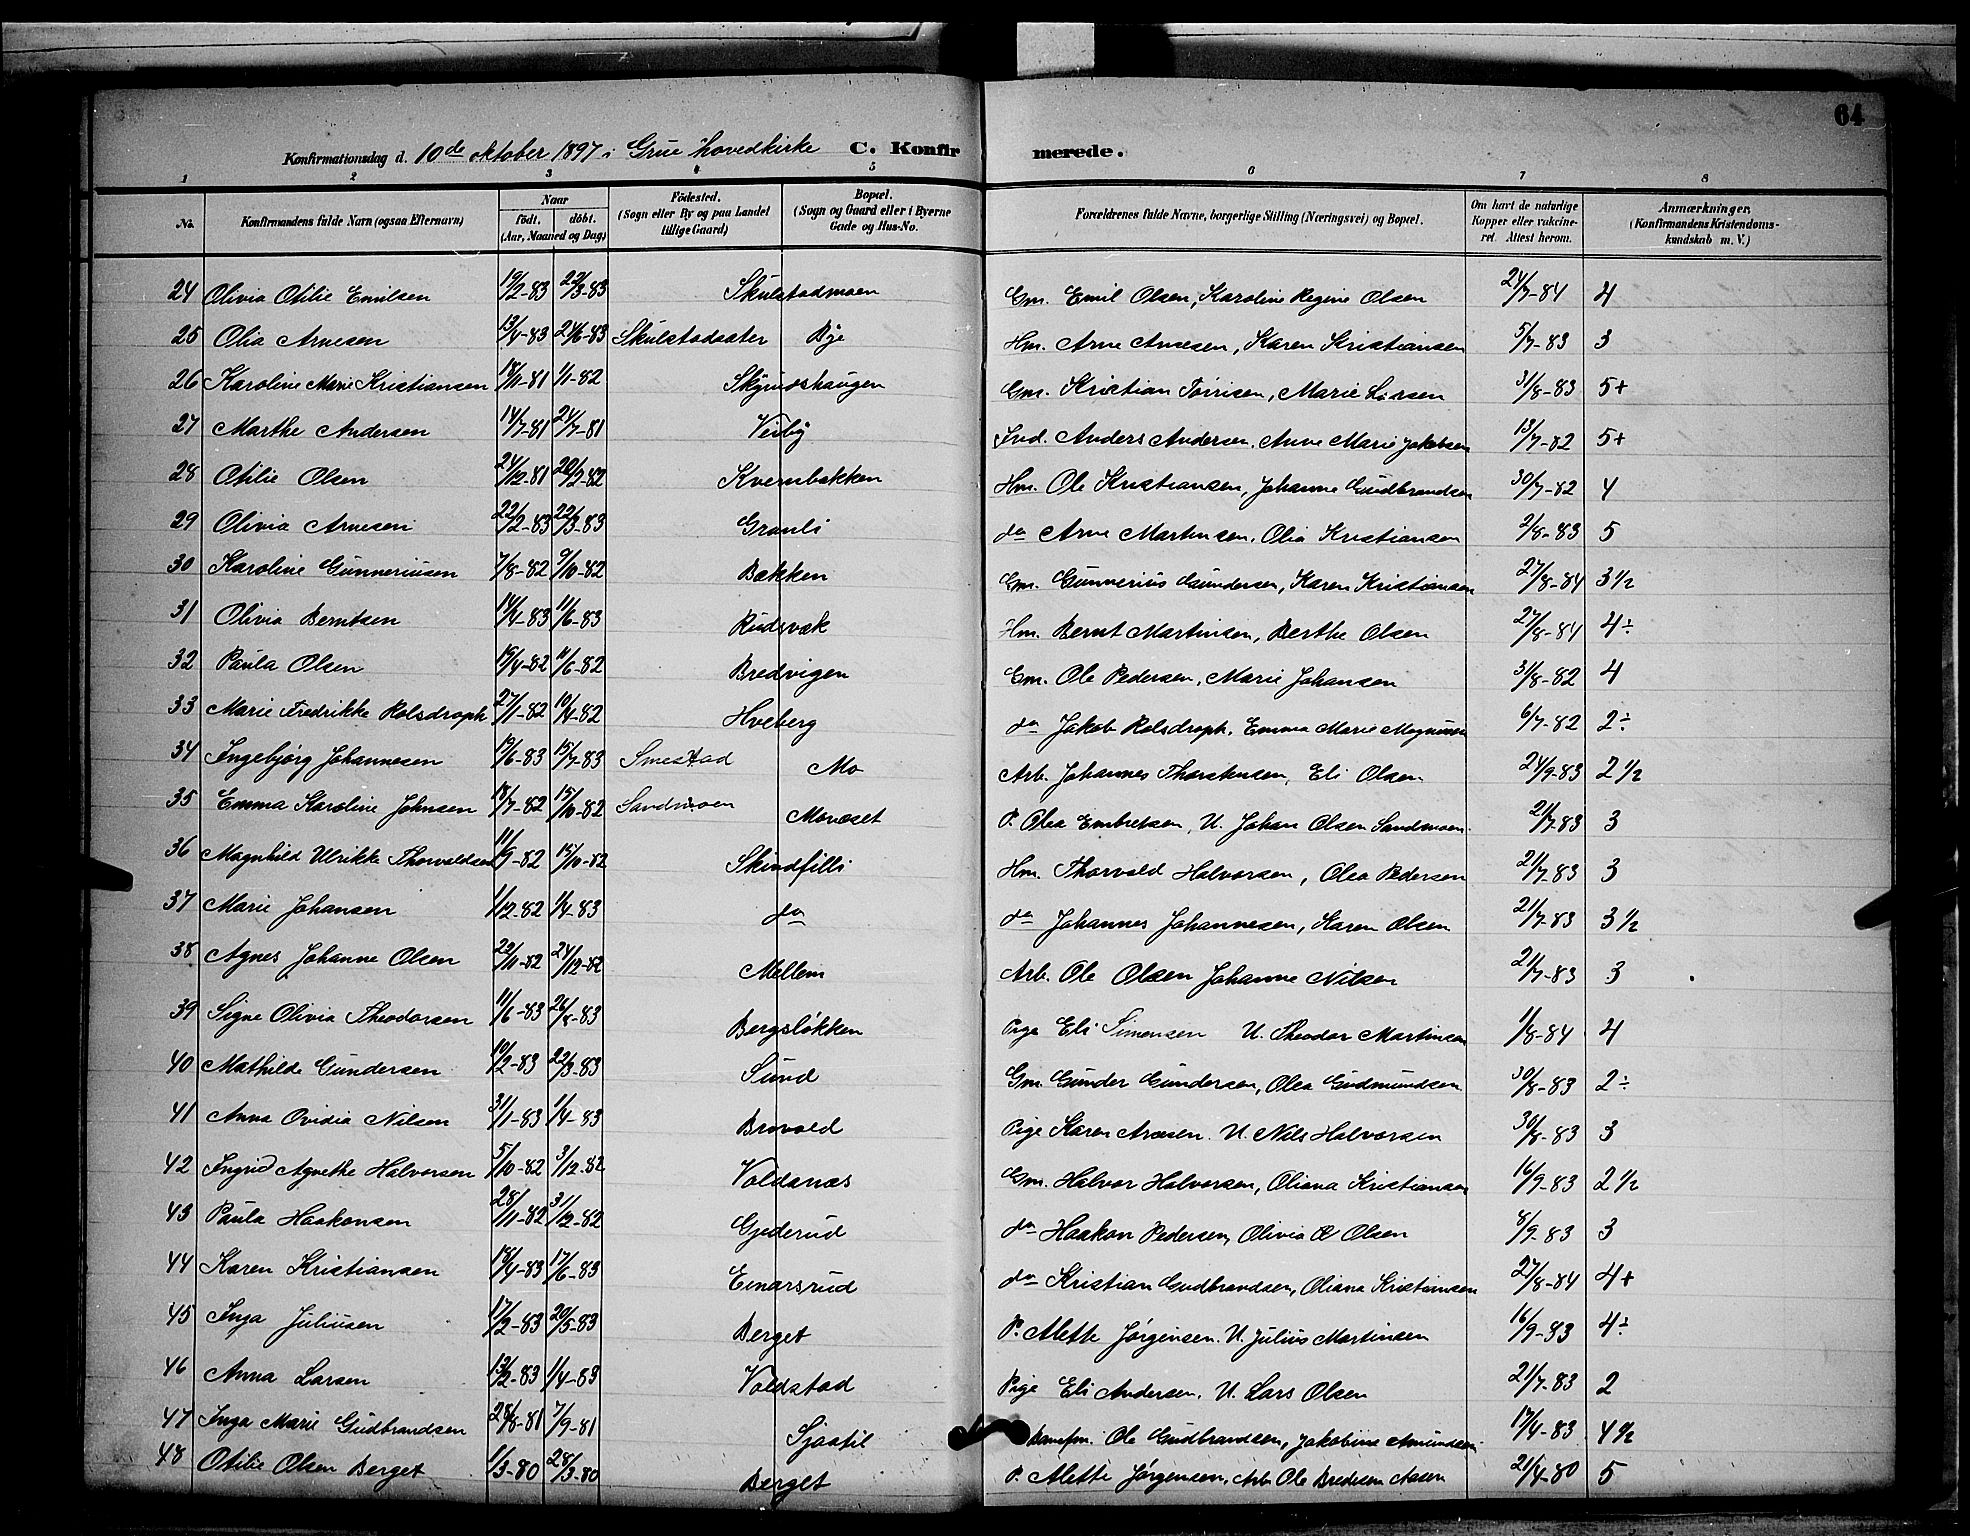 64
Konfirmationsdag d. 10de oktober 1897 i Grue hovedkirke C. Konfirmerede.
1 2 3 4 5 6 7 8
No. Konfirmandens fulde Navn (ogsaa Efternavn) Naar født. døbt. (Aar, Maaned og Dag) Fødested. (Sogn eller By og paa Landet tillige Gaard) Bopæl. (Sogn og Gaard eller i Byerne Gade og Hus-No. Forældrenes fulde Navne, borgerlige Stilling (Næringsvei) og Bopæl. Om havt de naturlige Kopper eller vakcineret. Attest herom. Anmærkninger, (Konfirmandens Kristendomskundskab m. V.)
24 Olivia Otilie Emilsen 19/2-83 22/3-83 Skulstadmoen Gm. Emil Olsen, Karoline Regine Olsen 24/7-84 4
25 Olia Arnesen 13/4-83 24/6-83 Skulstadsater Bye Hm. Arne Arnesen, Karen Kristiansen 5/7-83 3
26 Karoline Marie Kristiansen 18/11-81 1/1-82 Skyrudshaugen Gm. Kristian Torrisen, Marie Larsen 31/8-83 5+
27 Marthe Andersen 14/7-81 24/7-81 Veiby Ind. Anders Andersen, Anne Marie Jakobsen 13/7-82 5+
28 Otilie Olsen 24/12-81 20/2-82 Kvernbakken Hm. Ole Kristiansen, Johanne Gudbrandsen 30/7-82 4
29 Olivia Arnesen 22/2-83 22/3-83 Granli do Arne Martinsen, Olia Kristiansen 2/8-83 5
30 Karoline Gunneriusen 7/8-82 9/10-82 Bakken Gm. Gunnerius Gundersen, Karen Kristiansen 27/8-84 3½
31 Olivia Berntsen 14/4-83 11/6-83 Rudsvæk Hm. Bernt Martinsen, Berthe Olsen 27/8-84 4÷
32 Paula Olsen 19/4-82 11/6-82 Bredvigen Gm. Ole Pedersen, Marie Johansen 31/8-82 4
33 Marie Fredrikke Rolsdroph 27/1-82 10/4-82 Hveberg do Jakob Rolsdroph, Emma Marie Magnusen 6/7-82 2÷
34 Ingebjørg Johannesen 19/6-83 15/7-83 Smestad Mo Arb. Johannes Thorstensen, Eli Olsen 24/9-83 2½
35 Emma Karoline Johnsen 18/7-82 15/10-82 Sandmoen Movæset P. Olea Embretsen, U. Johan Olsen Sandmoen 21/7-83 3
36 Magnhild Ulrikke Thorvaldsen 11/9-82 15/10-82 Skindfilli Hm. Thorvald Halvorsen, Olea Pedersen 21/7-83 3
37 Marie Johansen 1/12-82 1/4-83 do do Johannes Johannesen, Karen Olsen 21/7-83 3½
38 Agnes Johanne Olsen 22/11-82 24/12-82 Mellem Arb. Ole Olsen Johanne Nilsen 21/7-83 3
39 Signe Olivia Theodorsen 11/6-83 26/8-83 Bergsløkken Pige Eli Simensen U. Theodor Martinsen 1/8-84 4
40 Mathilde Gundersen 10/2-83 22/3-83 Sund Gm. Gunder Gundersen, Olea Gudmundsen 30/8-83 2÷
41 Anna Ovidia Nilsen 31/1-83 1/4-83 Brovold Pige Karen Arnesen. U. Nils Halvorsen 30/8-83 3
42 Ingrid Agnethe Halvorsen 5/10-82 3/12-82 Voldsnæs Gm. Halvor Halvorsen, Oliana Kristiansen 16/9-83 2½
43 Paula Haakonsen 28/11-82 31/12-82 Gjederud do Haakon Pedersen, Olivia Olsen 8/9-83 3
44 Karen Kristiansen 18/4-83 17/6-83 Einarsrud do Kristian Gudbrandsen, Oliana Kristiansen 27/8-84 4+
45 Inga Juliusen 17/2-83 20/5-83 Berget P. Alette Jørgensen. U. Julius Martinsen 16/9-83 4÷
46 Anna Larsen 13/2-83 1/4-83 Voldstad Pige Eli Andersen. U. Lars Olsen 21/7-83 2
47 Inga Marie Gudbrandsen 28/8-81 7/9-81 Sjaatil Ole Gudbrandsen, Jakobine Amundsen 17/4-83 4½
48 Otilie Olsen Berget 1/3-80 28/3-80 Berget P. Alette Jørgensen, Arb. Ole Bredesen Aasen 21/4-80 5